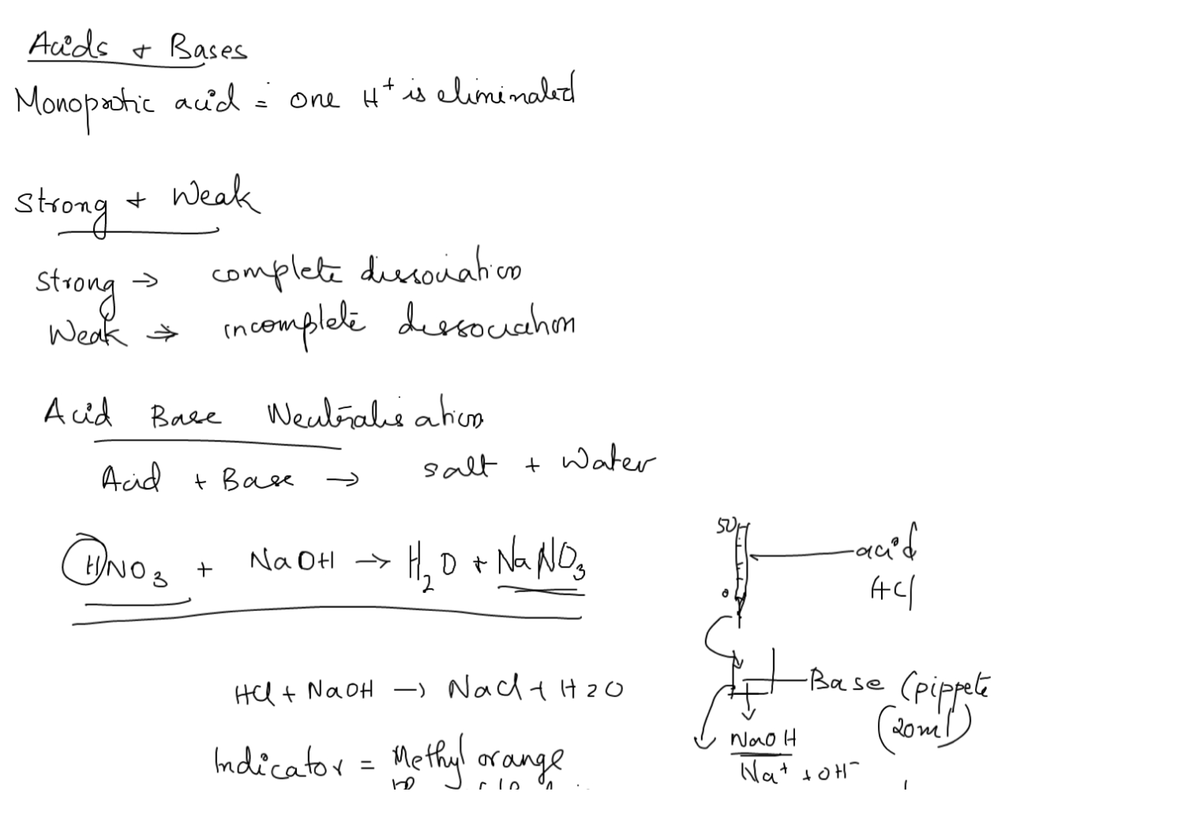 Acids + Bases
Monoprotic acid = one H⁺ is eliminated
Strong + Weak
Strong → complete dissociation
Weak → incomplete dissociation
Acid Base Neutralisation
Acid + Base → salt + Water
HNO₃ + NaOH → H₂O + NaNO₃
50
acid
HCl
0
HCl + NaOH → NaCl + H2O
Base (pippete
(20ml)
NaOH
Na⁺ + OH⁻
Indicator = Methyl orange